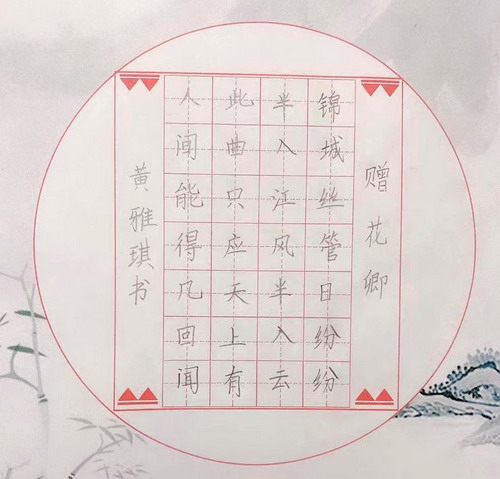 赠花卿
锦城丝管日纷纷
半入江风半入云
此曲只应天上有
人间能得几回闻
黄雅琪书